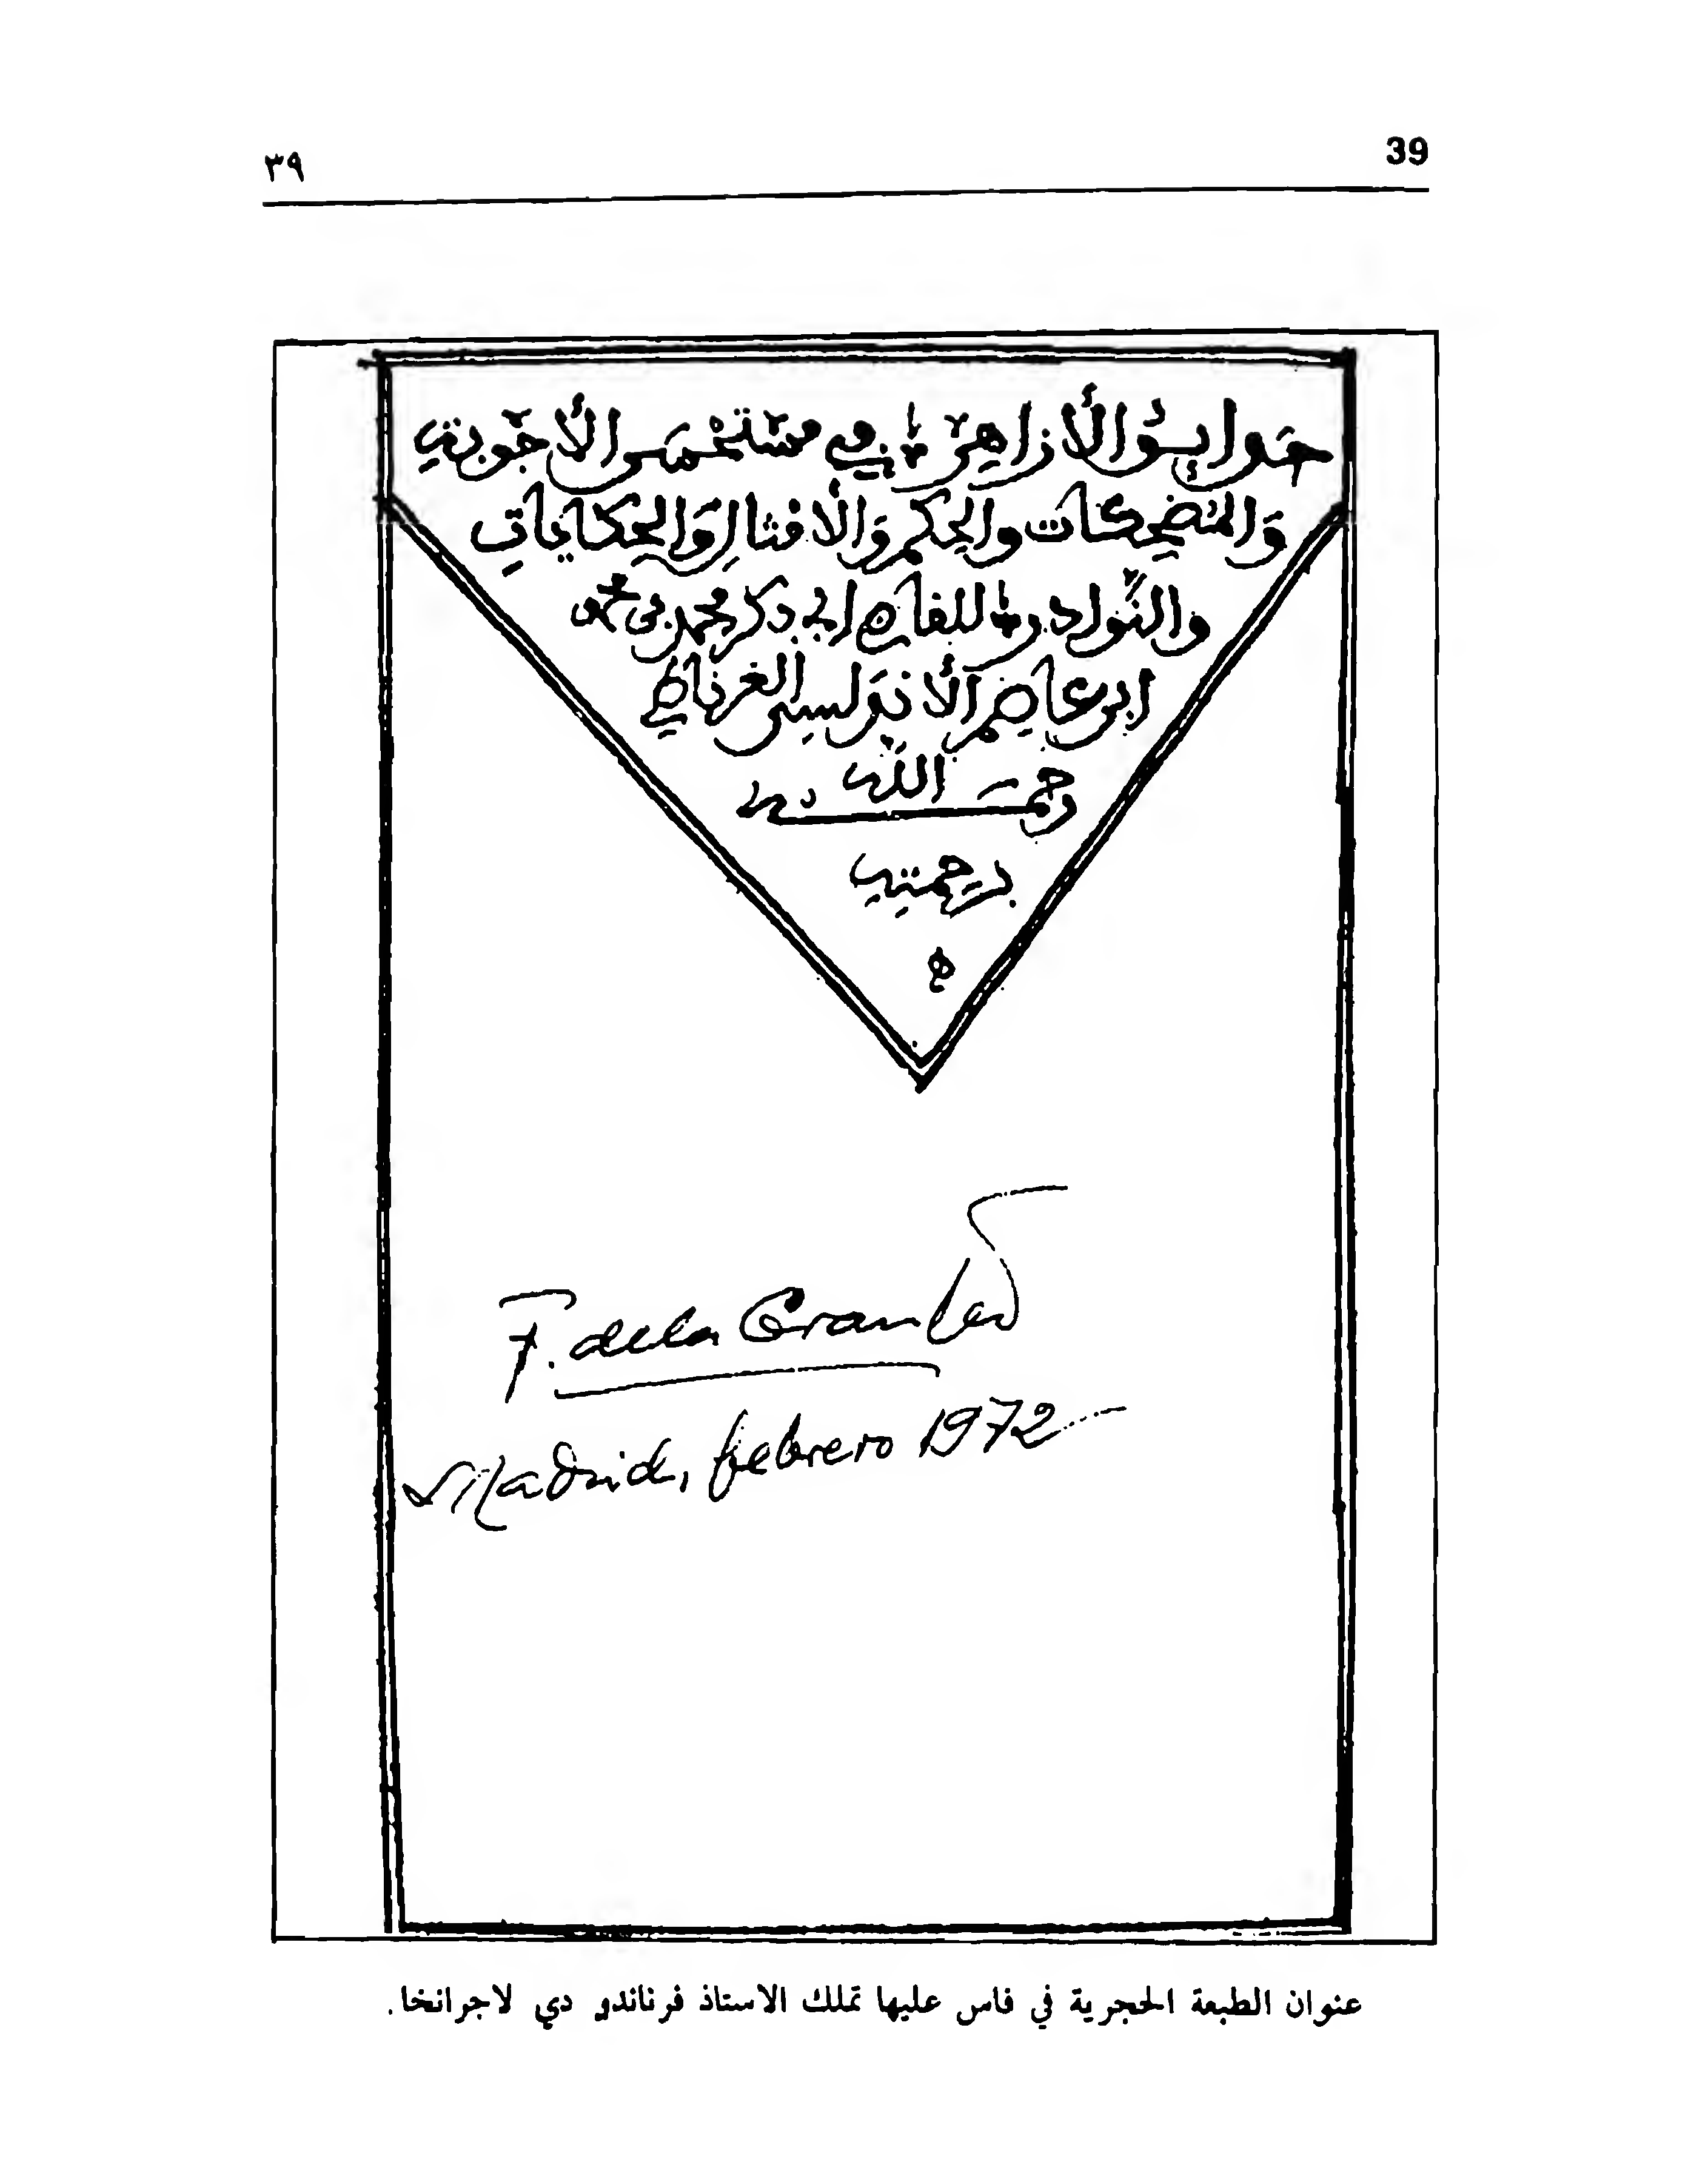 ٣٩
39
حَدَايِقُ الأَزَاهِرْ في مُسْتَحْسَنِ الأَجْوِبَةِ
وَالمُضْحِكَاتِ والحِكَمِ وَالأَمْثَالِ وَالحِكَايَاتِ
والنَّوادر للقاضي ابي بكر محمد بن محمد
ابن عَاصِم الأَنْدَلُسِي الغرناطي
رحمه الله
برحمته
ه
F. de la Granja
Madrid, febrero 1972
عنوان الطبعة الحجرية في فاس عليها تملك الاستاذ فرناندو دي لاجرانخا.